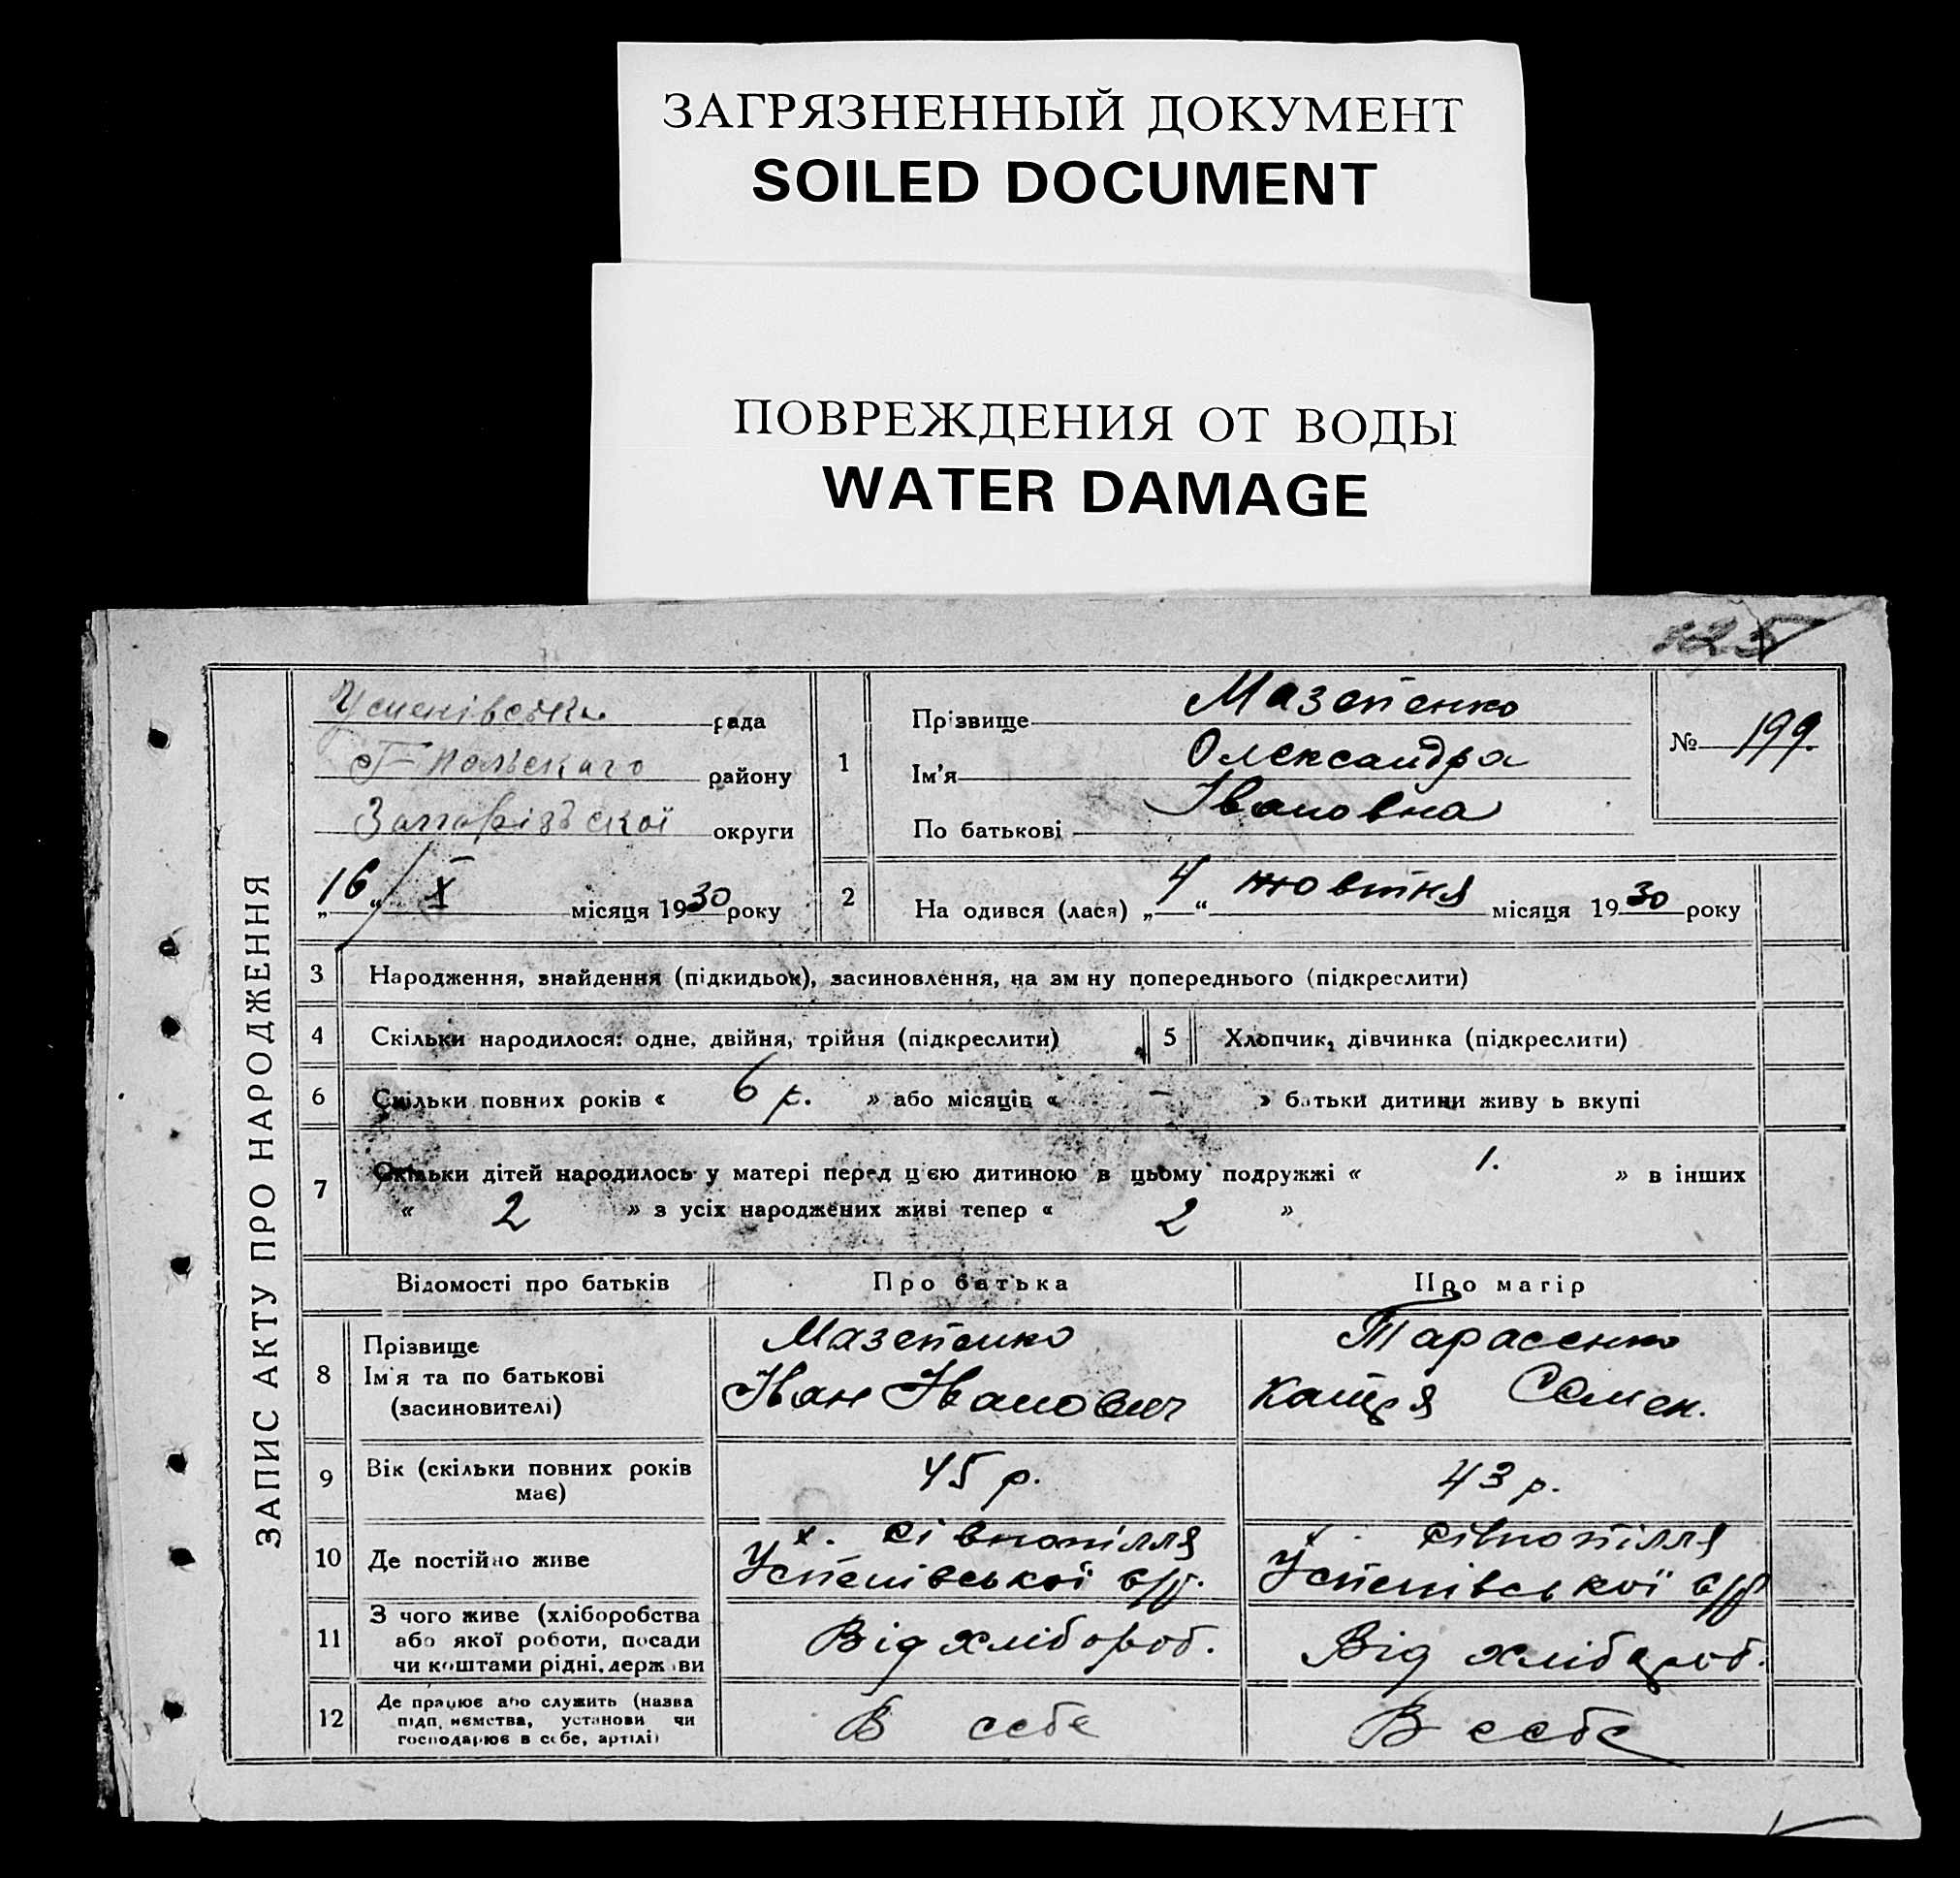 ЗАГРЯЗНЕННЫЙ ДОКУМЕНТ
SOILED DOCUMENT
ПОВРЕЖДЕНИЯ ОТ ВОДЫ
WATER DAMAGE
ЗАПИС АКТУ ПРО НАРОДЖЕННЯ
Успенівська рада
Г-Польского району
Запорізької округи
„16“ X місяця 1930 року
1
Прізвище Мазепенко
Ім'я Олександра
По батькові Івановна
№ 199.
2
На одився (лася) „4“ жовтня місяця 1930 року
3 Народження, знайдення (підкидьок), засиновлення, на зм ну попереднього (підкреслити)
4 Скільки народилося: одне, двійня, трійня (підкреслити) 5 Хлопчик, дівчинка (підкреслити)
6 Скільки повних років « 6 р. » або місяців « – » батьки дитини живу ь вкупі
7 Скільки дітей народилось у матері перед цією дитиною в цьому подружжі « 1. » в інших
« 2 » з усіх народжених живі тепер « 2 »
Відомості про батьків Про батька Про матір
8 Прізвище Ім'я та по батькові (засиновителі)
Мазепенко Іван Іванович
Тарасенко Катря Семен.
9 Вік (скільки повних років має) 45 р. 43 р.
10 Де постійно живе
х. Рівнопілля Успенівської с/р.
х. Рівнопілля Успенівської с/р
11 З чого живе (хліборобства або якої роботи, посади чи коштами рідні, держави
Від хлібороб. Від хлібороб.
12 Де працює або служить (назва підп. иємства, установи чи господарює в себе, артілі)
В себе В себе